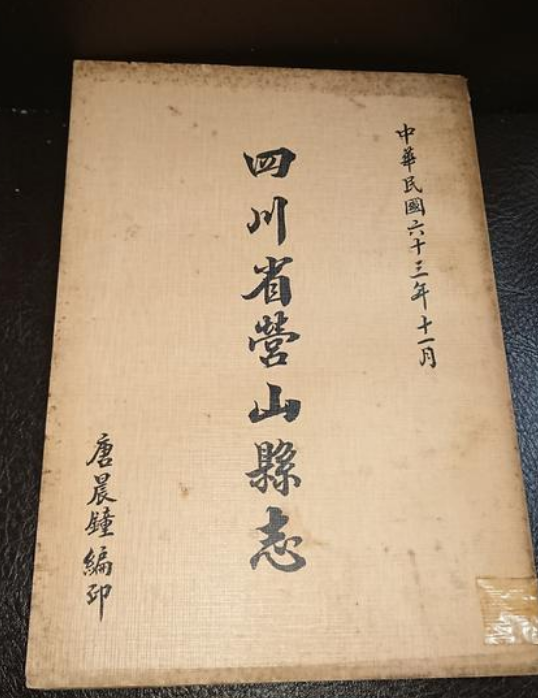 中華民國六十三年十一月
四川省營山縣志
唐晨鐘編印